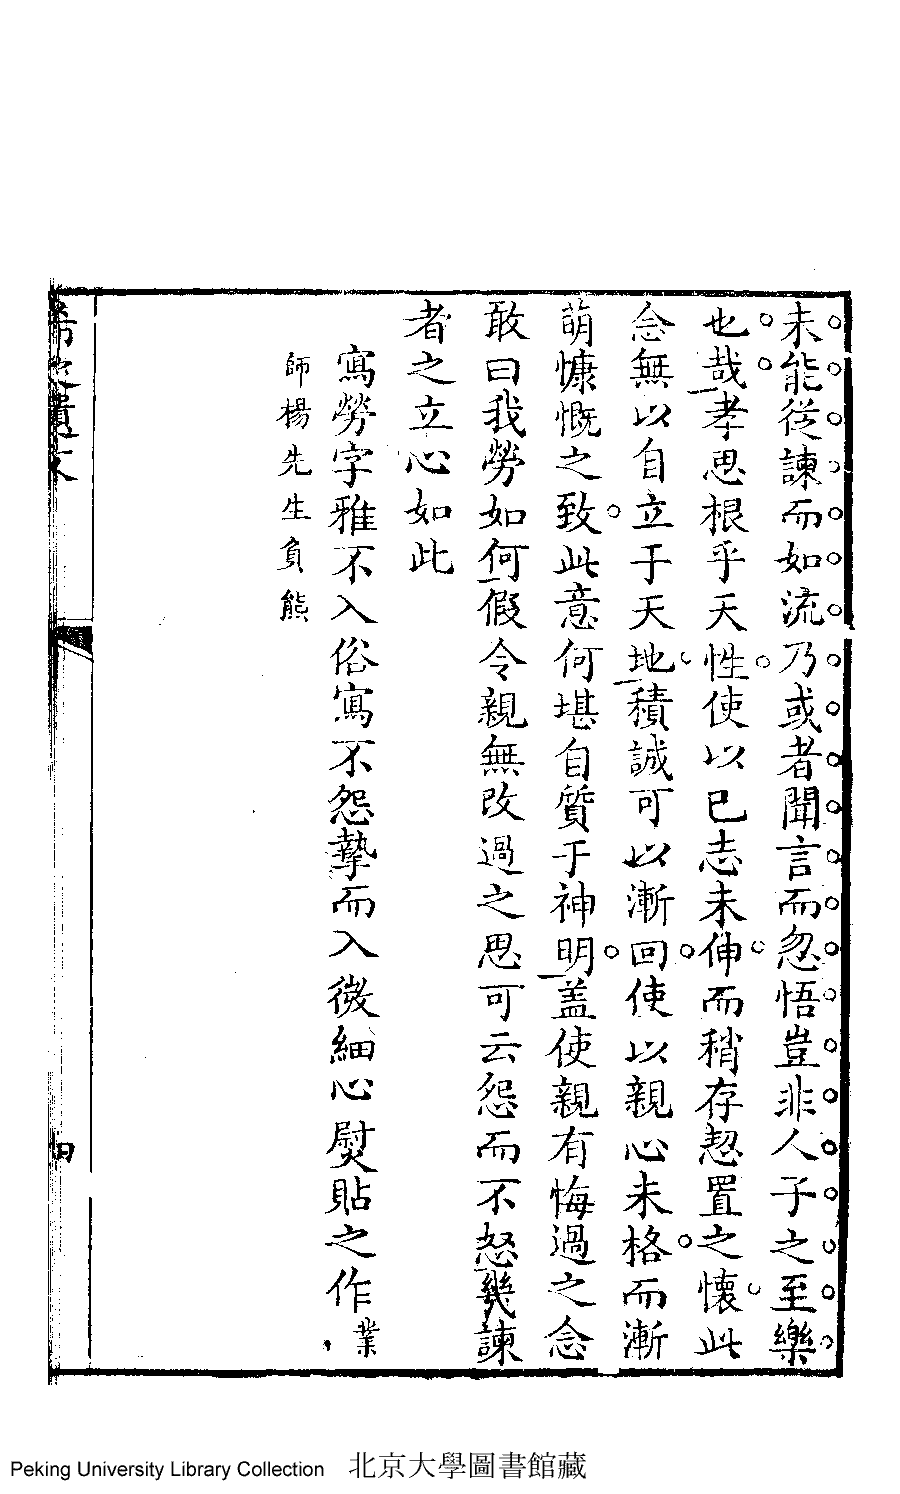 未能從諫而如流乃或者聞言而忽悟豈非人子之至樂
也哉孝思根乎天性使以已志未伸而稍存恝置之懷此
念無以自立于天地積誠可以漸回使以親心未格而漸
萌慷慨之致此意何堪自質于神明蓋使親有悔過之念
敢曰我勞如何假令親無改過之思可云怨而不怒幾諫
者之立心如此
寫勞字雅不入俗寫不怨摯而入微細心熨貼之作業
師楊先生負熊
希之遺文
四
Peking University Library Collection 北京大學圖書館藏